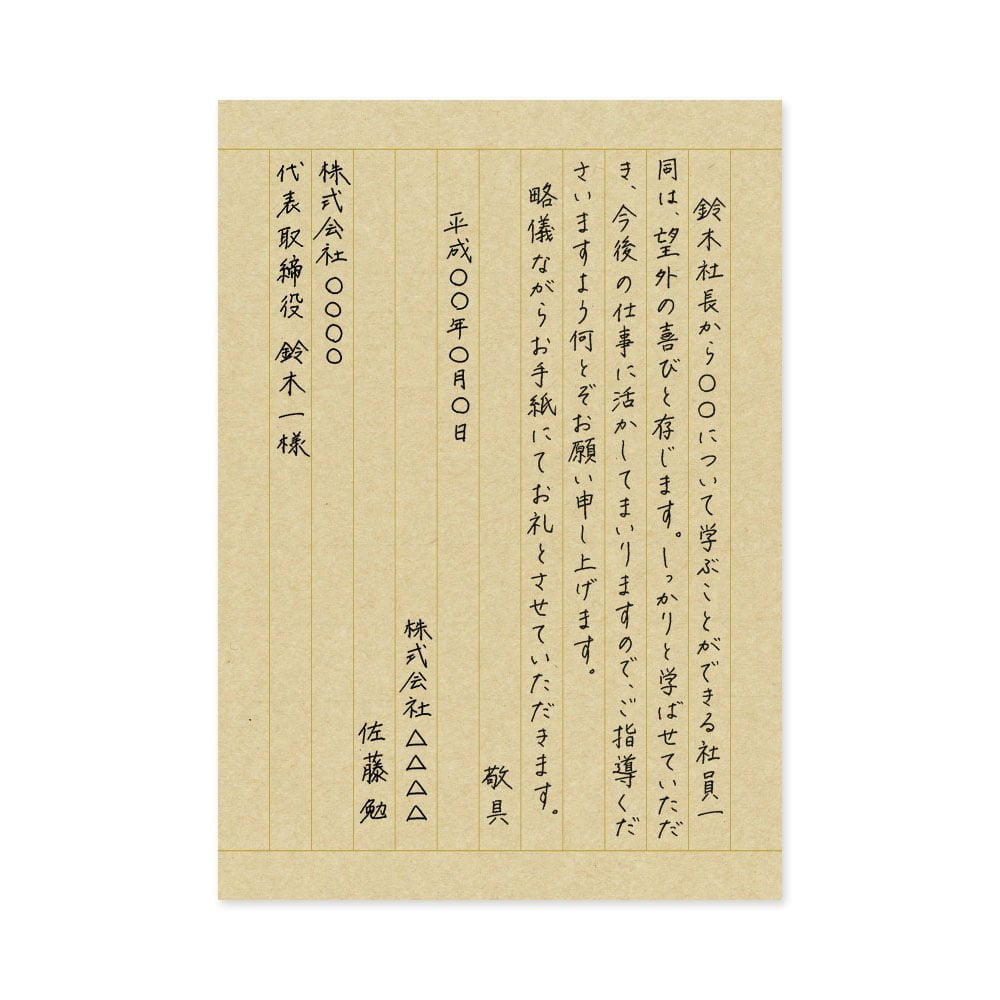 鈴木社長から○○について学ぶことができる社員一
同は、望外の喜びと存じます。しっかりと学ばせていただ
き、今後の仕事に活かしてまいりますので、ご指導くだ
さいますよう何とぞお願い申し上げます。
略儀ながらお手紙にてお礼とさせていただきます。
敬具
平成○○年○月○日
株式会社△△△△
佐藤勉
株式会社○○○○
代表取締役 鈴木一様